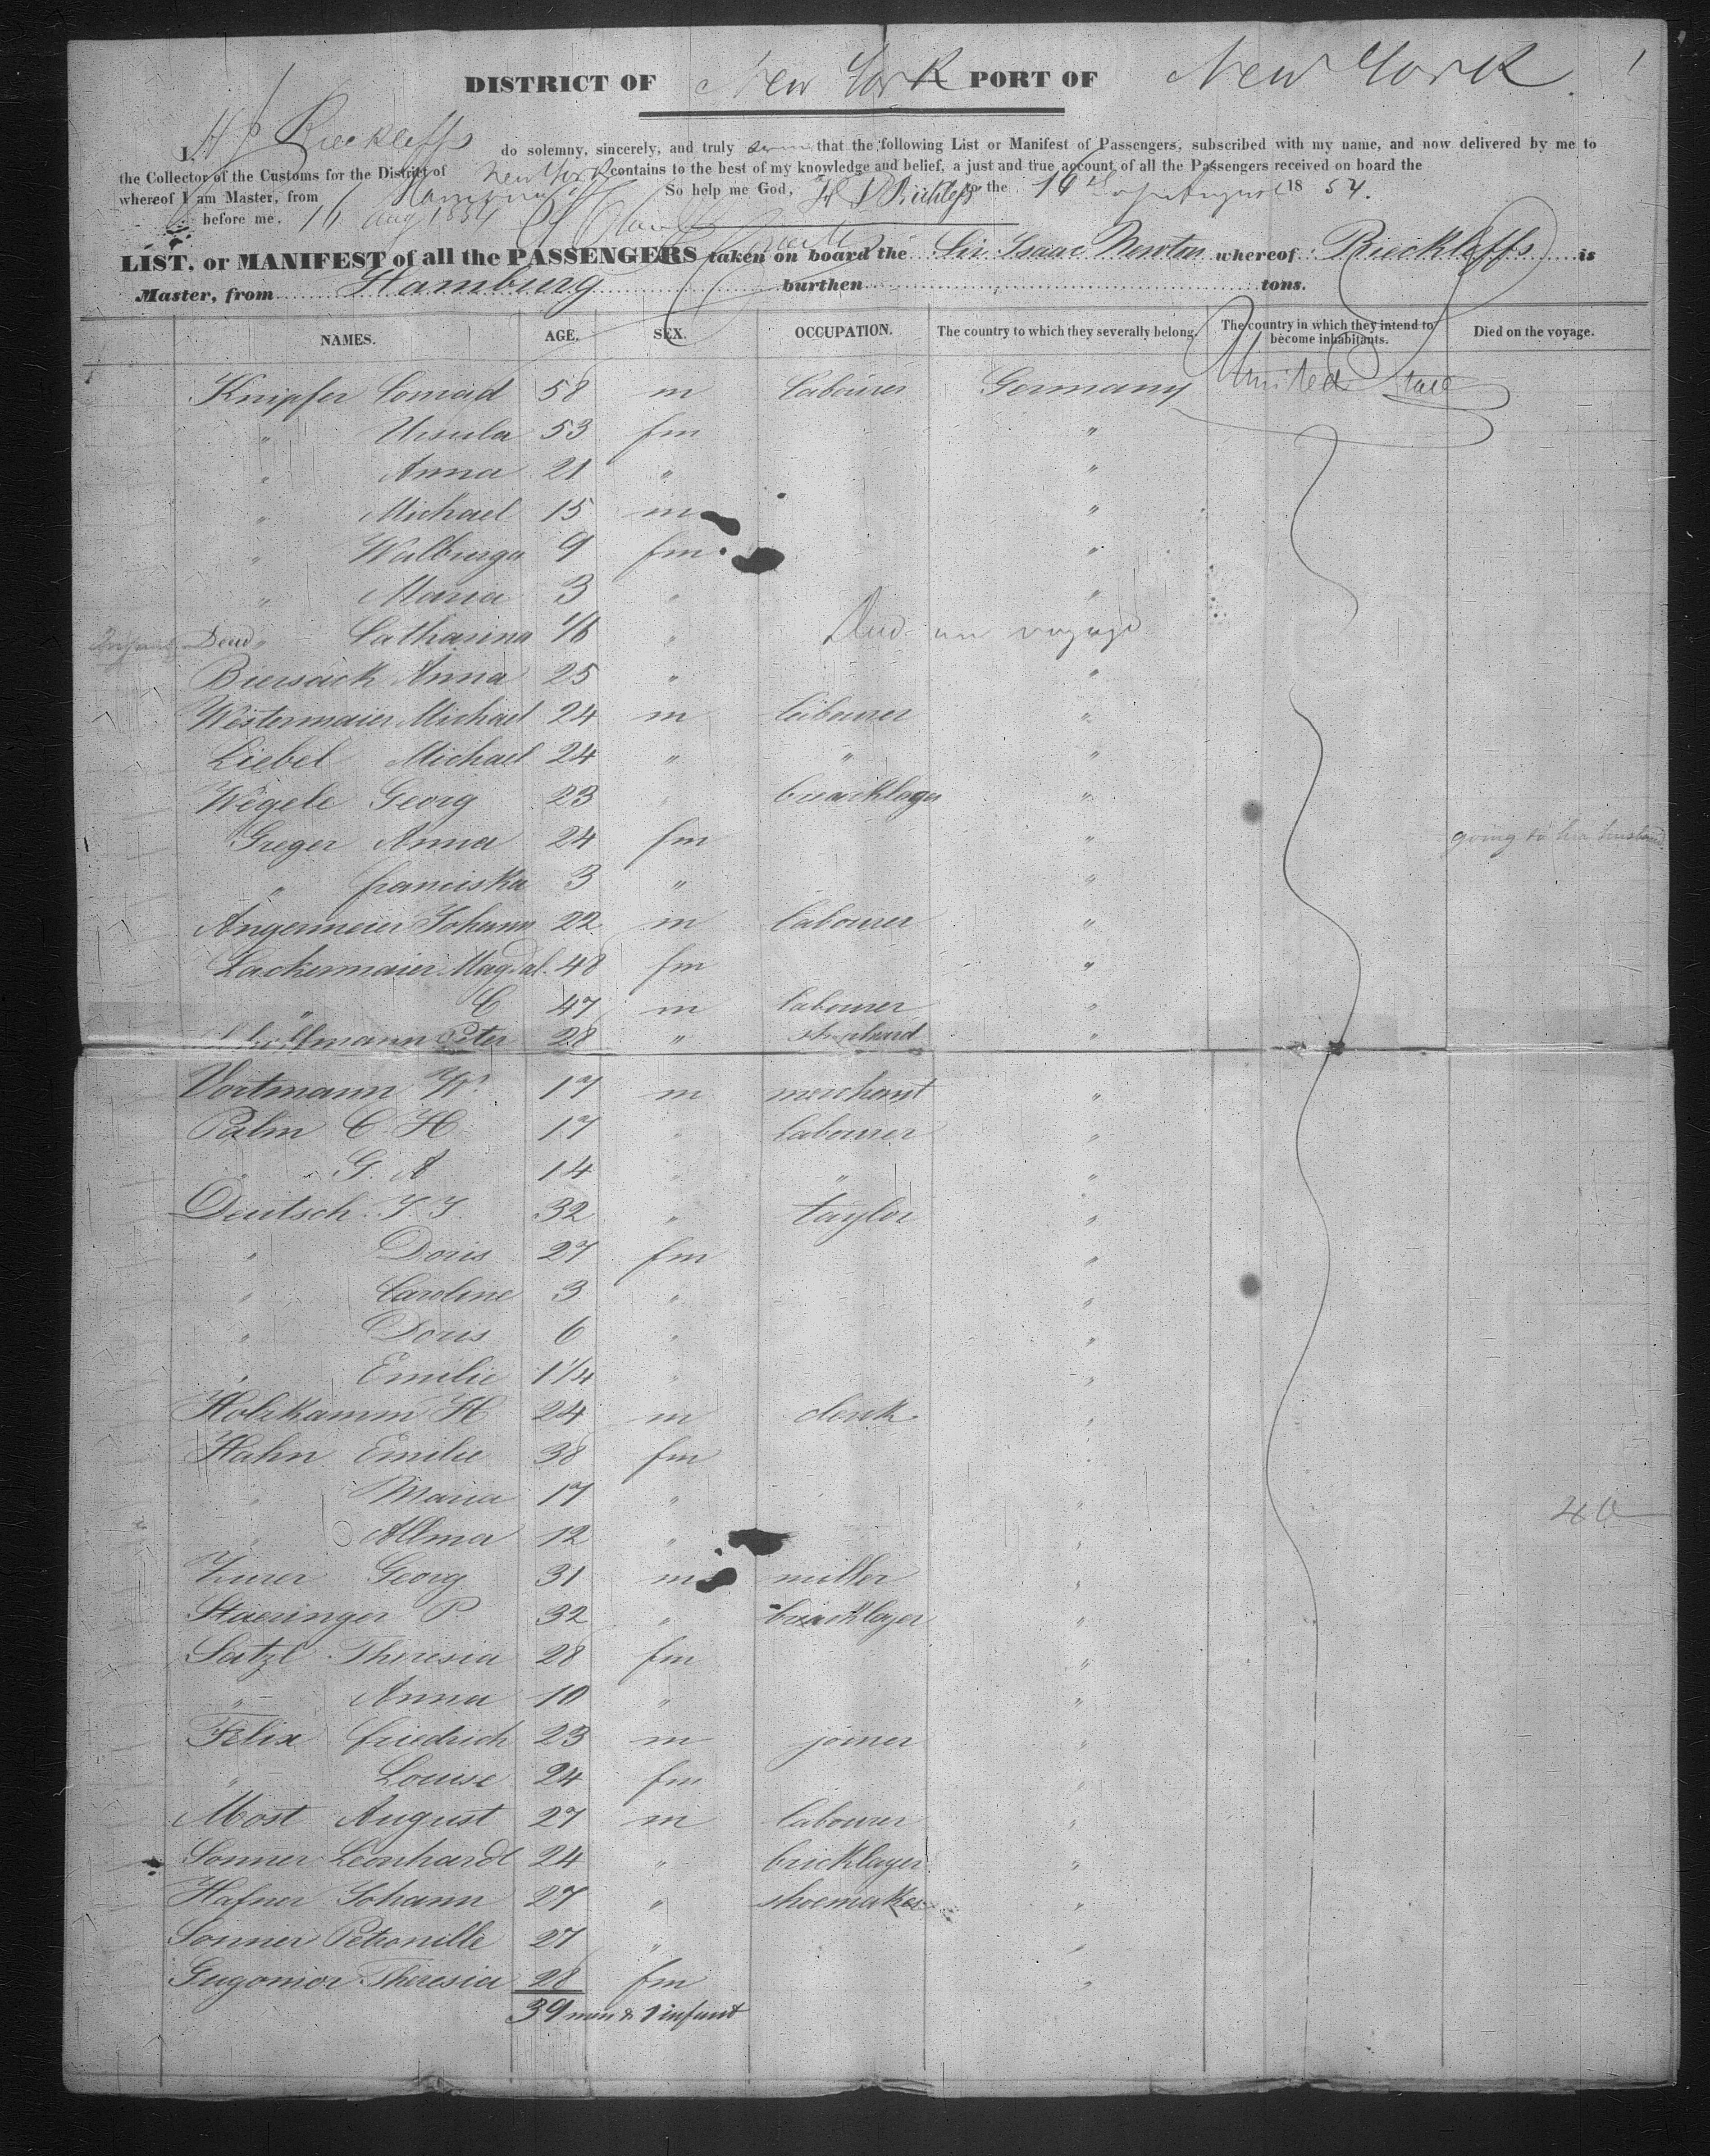 DISTRICT OF New York PORT OF New York. 1
I, H P Rieckleffs do solemny, sincerely, and truly that the following List or Manifest of Passengers, subscribed with my name, and now delivered by me to
the Collector of the Customs for the District of New York contains to the best of my knowledge and belief, a just and true account of all the Passengers received on board the
whereof I am Master, from So help me God, the 16 August 18 54.
before me, 16 Aug 1854
LIST, or MANIFEST of all the PASSENGERS taken on board the Sir Isaac Newton whereof Rieckleffs is
Master, from Hamburg burthen tons.
NAMES. AGE. SEX. OCCUPATION. The country to which they severally belong. The country in which they intend to become inhabitants. Died on the voyage.
Knipfer Conrad 58 m labourer Germany United State
" Ursula 53 fm "
" Anna 21 " "
" Michael 15 m "
" Walburga 9 fm "
" Maria 3 " "
Infant Dead " Catharina 1/6 " Died on voyage
Biersack Anna 25 " "
Westermaier Michael 24 m labourer "
Liebel Michael 24 " " "
Wegele Georg 23 " bracklager "
Greger Anna 24 fm " going to her husband
" franciska 3 " "
Angermeier Johann 22 m labourer "
Lackermaier Magdal. 48 fm "
" C 47 m labourer "
Peter 28 " shephard "
Vortmann W. 17 m merchant "
Palm C. H 17 " labourer "
" G. A 14 " " "
Deutsch J. J. 32 " taylor "
" Doris 27 fm "
" Caroline 3 " "
" Doris 6 " "
" Emilie 1 1/4 " "
Holzkamm H 24 m clerk "
Hahn Emilie 38 fm "
" Maria 17 " "
" Allma 12 " "
Zurer Georg 31 m miller "
Staeringer P. 32 " bracklayer "
Satzl Theresia 28 fm "
" Anna 10 " "
Felix friedrich 23 m joiner "
" Louise 24 fm "
Most August 27 m labourer "
Sonner Leonhardt 24 " bricklayer "
Hafner Johann 27 " shoemaker "
Sonner Petronille 27 " "
Gugomor Theresia 28 fm "
39 men & 1 infant